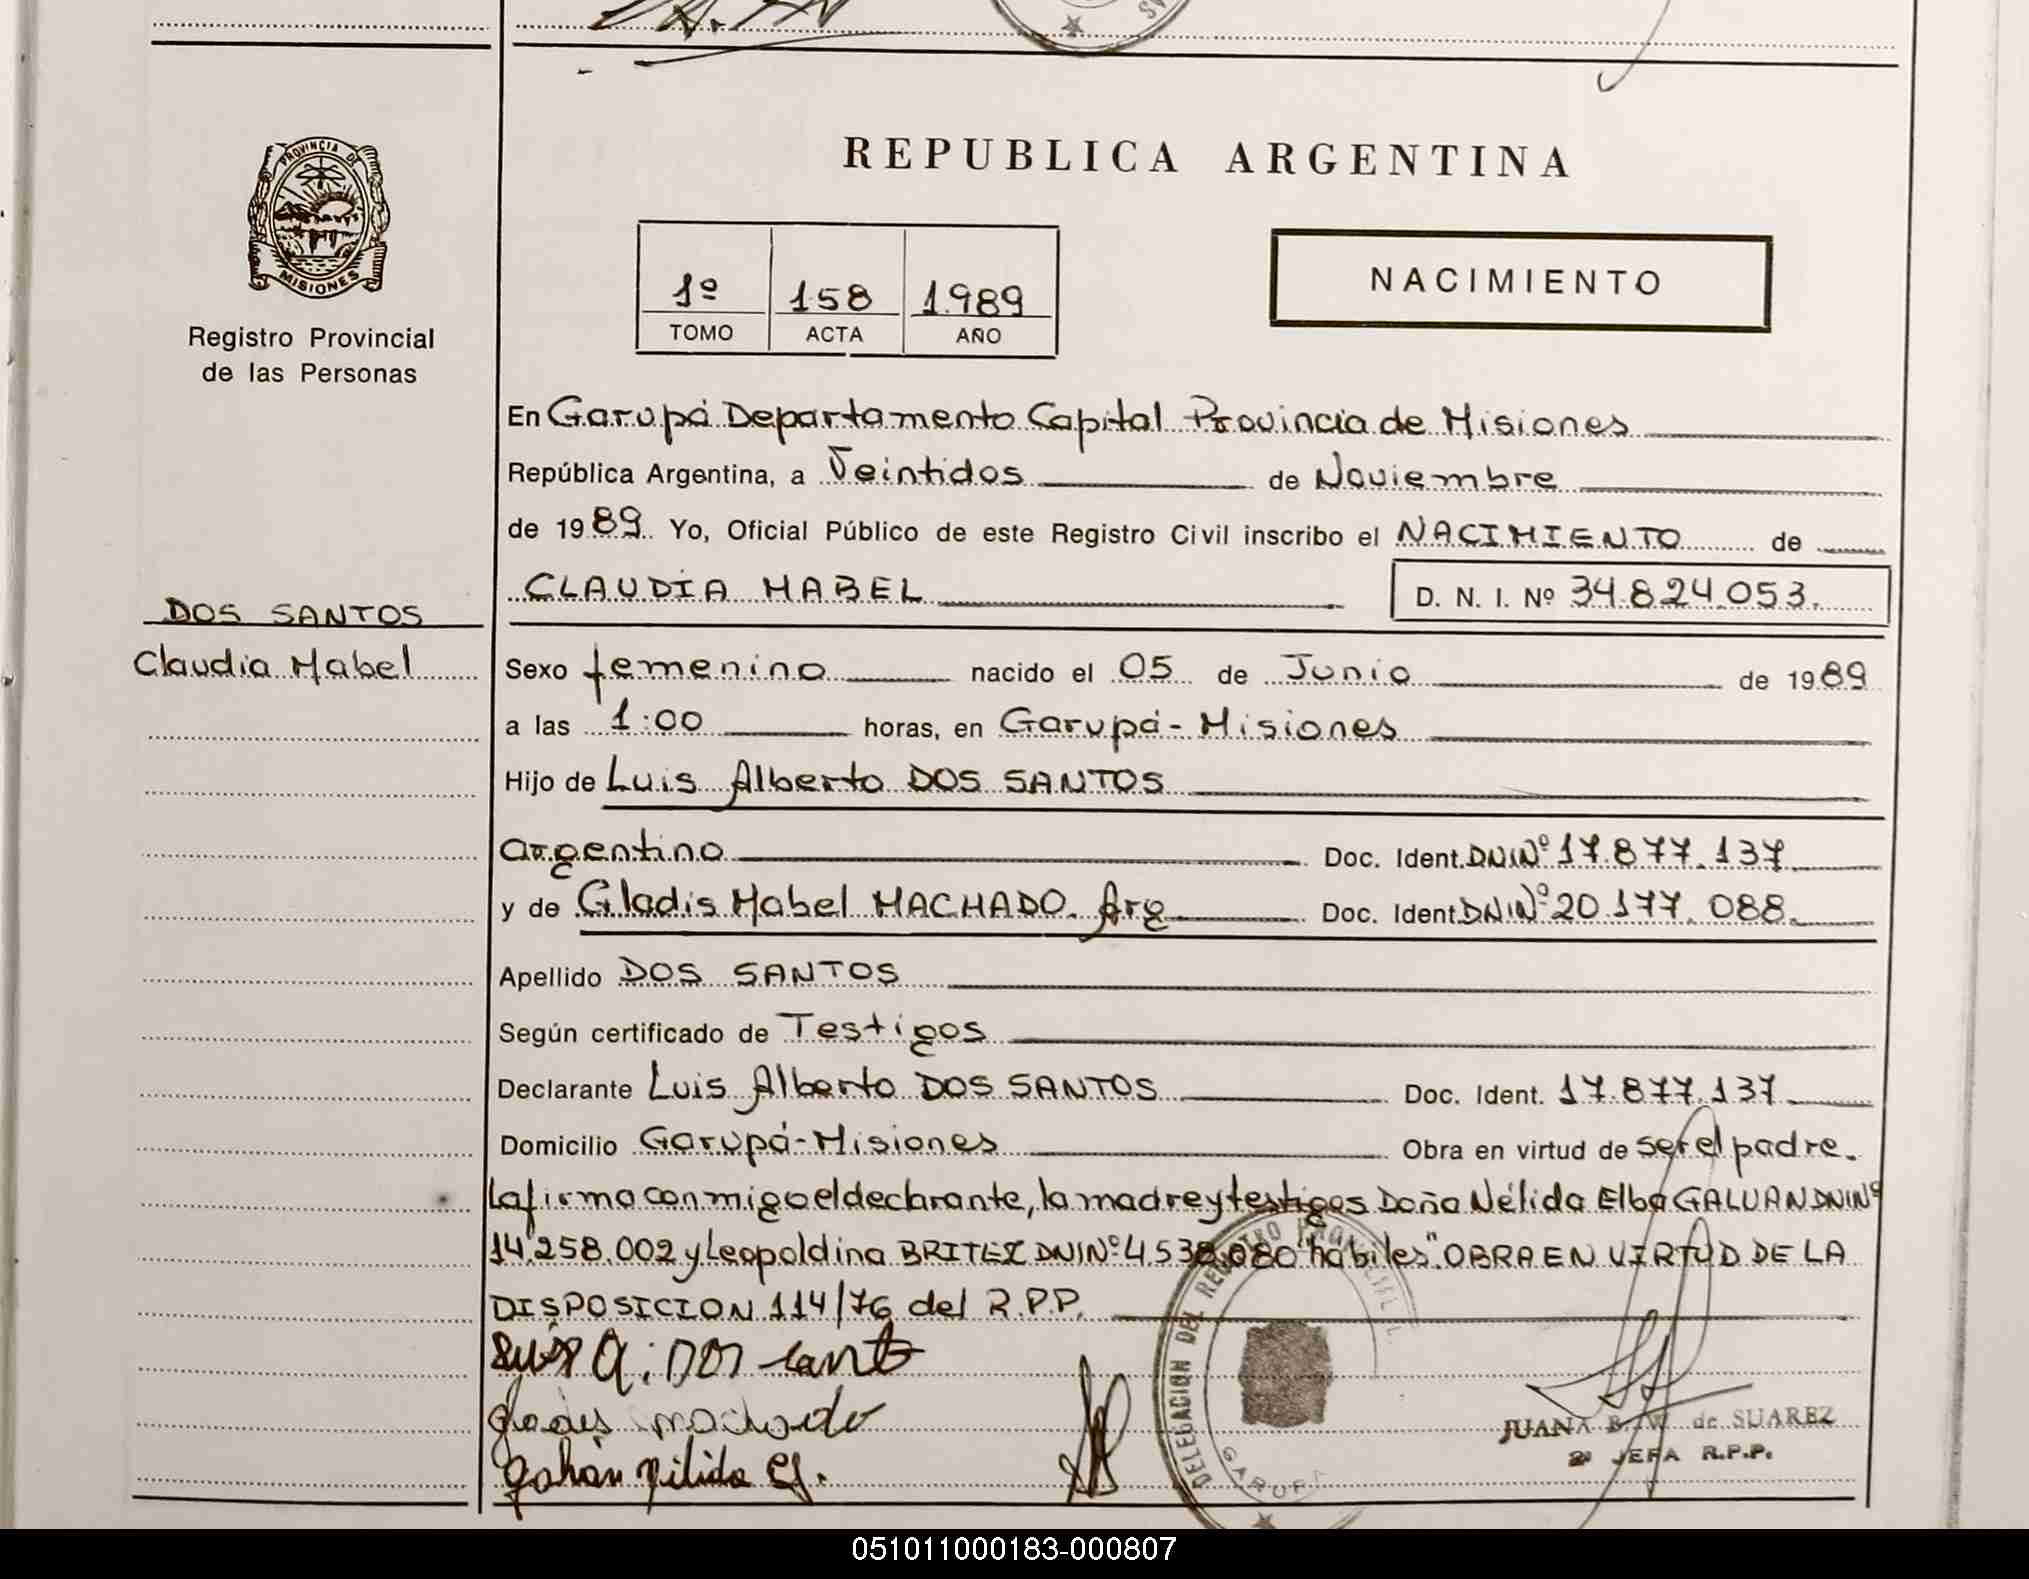 PROVINCIA DE
MISIONES
Registro Provincial
de las Personas
REPUBLICA ARGENTINA
1º 158 1.989
TOMO ACTA AÑO
NACIMIENTO
En Garupá Departamento Capital Provincia de Misiones
República Argentina, a Veintidos de Noviembre
de 1989. Yo, Oficial Público de este Registro Civil inscribo el NACIMIENTO de
CLAUDIA MABEL D. N. I. Nº 34.824.053.
DOS SANTOS
Claudia Mabel
Sexo femenino nacido el 05 de Junio de 1989
a las 1:00 horas, en Garupá - Misiones
Hijo de Luis Alberto DOS SANTOS
argentino Doc. Ident. DNI Nº 17.877.137
y de Gladis Mabel MACHADO. Arg Doc. Ident. DNI Nº 20.177.088.
Apellido DOS SANTOS
Según certificado de Testigos
Declarante Luis Alberto DOS SANTOS Doc. Ident. 17.877.137
Domicilio Garupá-Misiones Obra en virtud de ser el padre.
La firma conmigo el declarante, la madre y testigos Doña Nélida Elba GALVAN DNI Nº
14.258.002 y Leopoldina BRITEZ DNI Nº 4.538.080 "habiles". OBRA EN VIRTUD DE LA
DISPOSICION 114/76 del R.P.P.
Luis A. Dos Santo
gladis machado
galván nilida el.
DELEGACION DEL REGISTRO PROVINCIAL
GARUPA
JUANA B. W. de SUAREZ
2ª JEFA R.P.P.
051011000183-000807